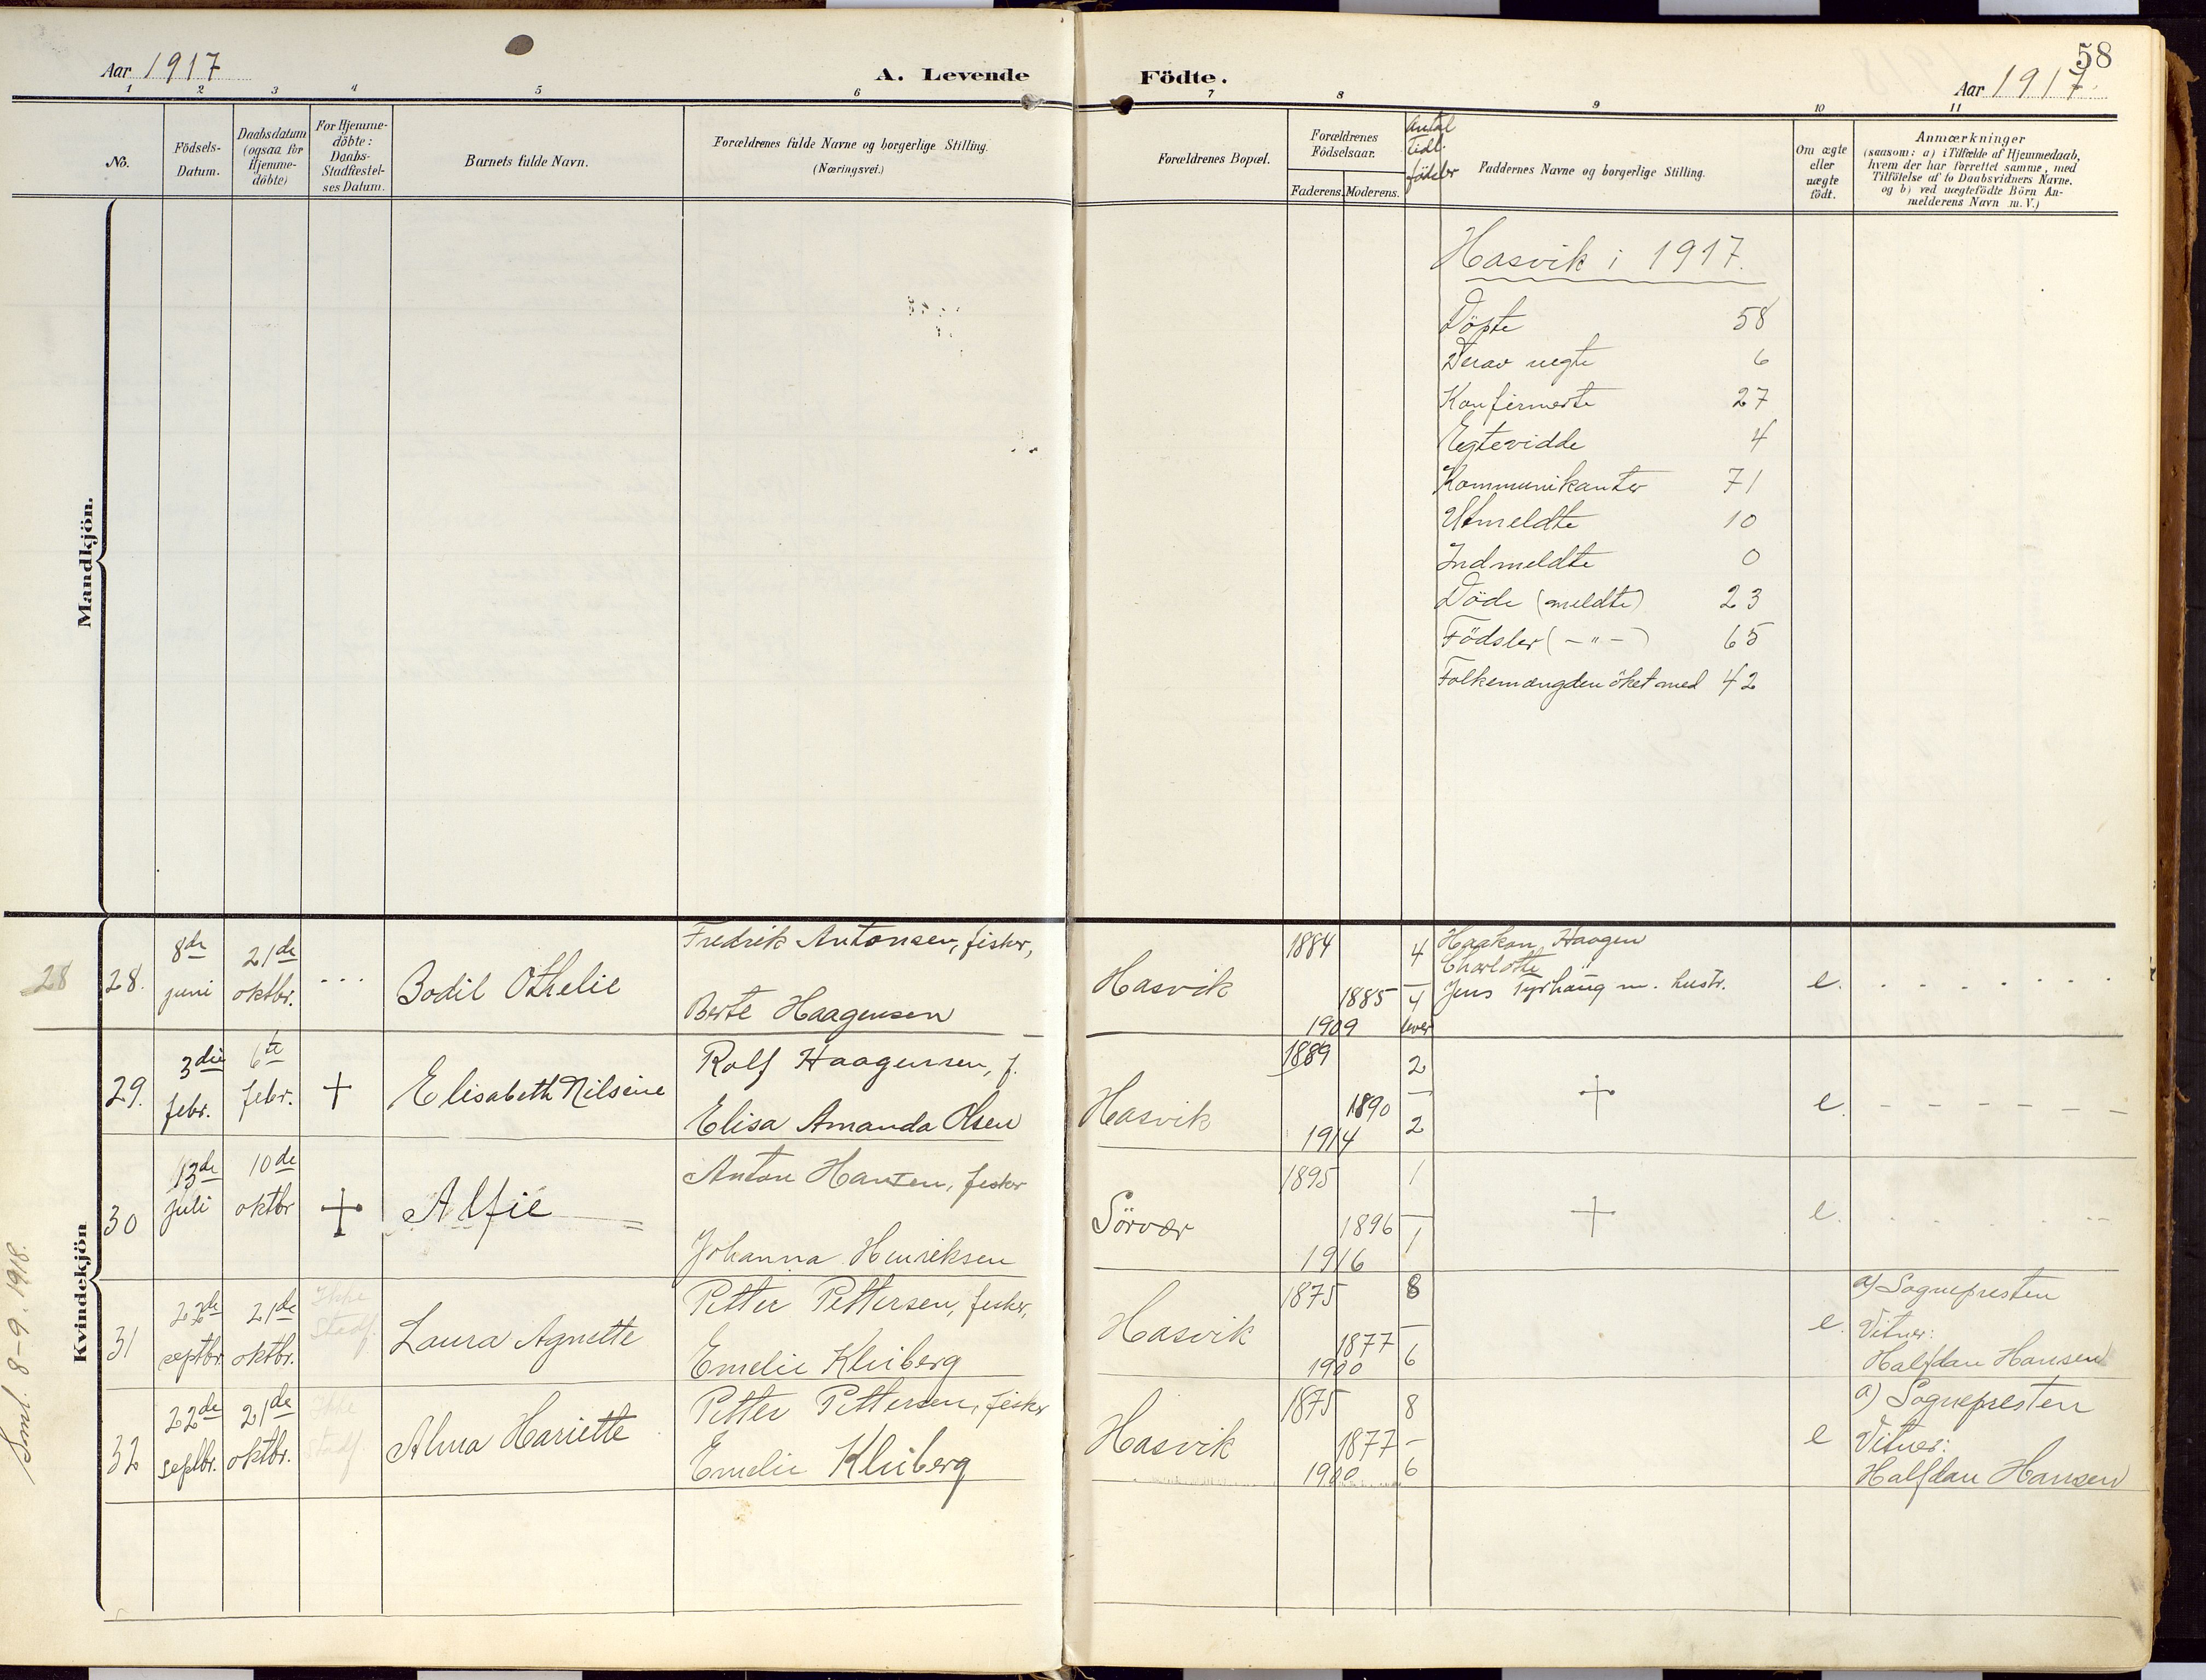 58
Aar 1917
A. Levende Födte.
Aar 1917.
1 2 3 4 5 6 7 8 9 10 11
No.
Födsels-
Datum.
Daabsdatum
(ogsaa for
Hjemme-
döbte)
For Hjemme-
döbte:
Daabs-
Stadfæstel-
ses Datum.
Barnets fulde Navn.
Forældrenes fulde Navne og borgerlige Stilling.
(Næringsvei.)
Forældrenes Bopæl.
Forældrenes
Födselsaar.
Faderens. Moderens.
Antal
tidl.
födsler
Faddernes Navne og borgerlige Stilling.
Om ægte
eller
uægte
födt.
Anmærkninger
(saasom: a) i Tilfælde af Hjemmedaab,
hvem der har forrettet samme, med
Tilföielse af to Daabsvidners Navne,
og b) ved uægtefödte Börn An-
melderens Navn m. V.)
Mandkjön.
Hasvik i 1917.
Döpte 58
Derav uegte 6
Konfirmerte 27
Egtevidde 4
Kommunikanter 71
Utmeldte 10
Indmeldte 0
Döde (meldte) 23
Födsler ( - " - ) 65
Folkemængden öket med 42
Kvindekjön
Sml. 8-9. 1918.
28
28.
8de
juni
21de
oktbr.
- - -
Bodil Othelie
Fredrik Antonsen, fisker,
Berte Haagensen
Hasvik
1884
1885
1909
4
-
4
lever
Haakon Haagen
Charlotte
Jens Tyrhaug m. hustr.
e.
29.
3die
febr.
6te
febr.
+
Elisabeth Nilsine
Rolf Haagensen, f.
Elisa Amanda Olsen
Hasvik
1889
1890
1914
2
-
2
+
e.
- - - - - -
30
13de
juli
10de
oktbr
+
Alfie
Anton Hansen, fisker
Johanna Henriksen
Sörvær
1895
1896
1916
1
-
1
+
e.
31
22de
septbr.
21de
oktbr.
Ikke
Stadf.
Laura Agnette
Petter Pettersen, fisker,
Emelie Kleiberg
Hasvik
1875
1877
1900
8
-
6
e.
a) Sognepresten
Vitner:
Halfdan Hansen
32
22de
septbr.
21de
oktbr.
Ikke
Stadf.
Alma Hariette
Petter Pettersen, fisker
Emelie Kleiberg
Hasvik
1875
1877
1900
8
-
6
e
a) Sognepresten
Vitner:
Halfdan Hansen